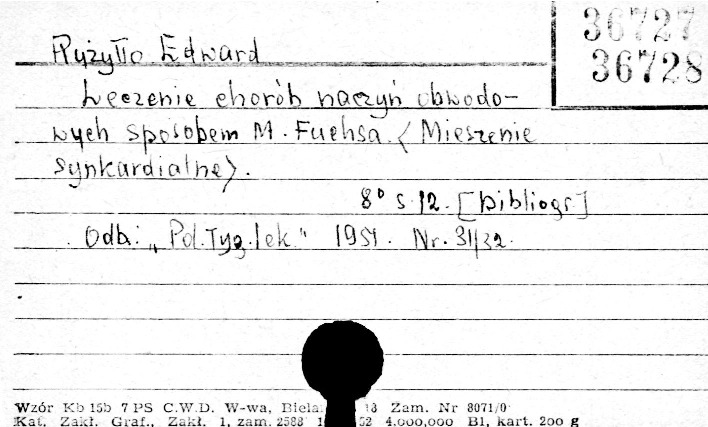 36727
36728
Ryżyłło Edward
Leczenie chorób naczyń obwodo-
wych sposobem M. Fuchsa. <Mieszenie
synkardialne>.
8° s. 12. [bibliogr]
Odb: „Pol. Tyg. lek." 1951. Nr. 31/32.
Wzór Kb 15b 7 PS C.W.D. W-wa, Biela 18 Zam. Nr 8071/0
Kat. Zakł. Graf., Zakł. 1, zam. 2588 52 4.000,000 B1, kart. 200 g